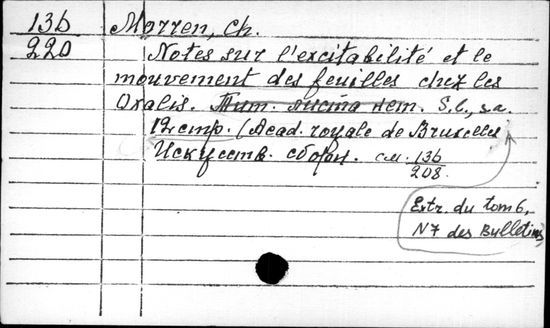 13b
220
Morren, Ch.
Notes sur l'excitabilité et le
mouvement des feuilles chez les
Oxalis. Тит. листа нет. S.l., s.a.
12 стр. (Acad. royale de Bruxelles
Искусств. сборн. см. 13b
208.
Extr. du tom 6,
N 7 des Bulletins)